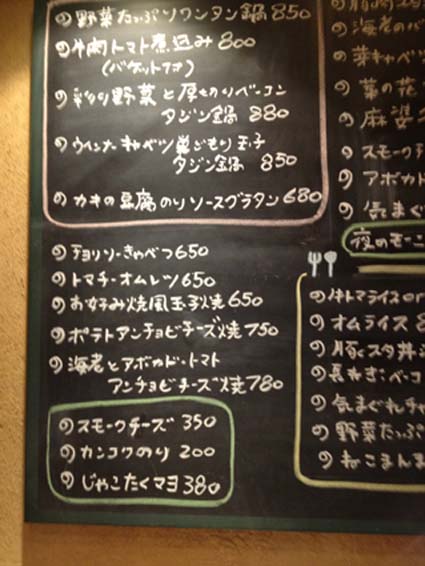 野菜たっぷりワンタン鍋 850
牛肉トマト煮込み 800
(バゲット付)
彩り野菜と厚切りベーコン
タジン鍋 880
ウインナーキャベツ巣ごもり玉子
タジン鍋 850
カキの豆腐のりソースグラタン 680
チョリソーきゃべつ 650
トマチーオムレツ 650
お好み焼風玉子焼 650
ポテトアンチョビチーズ焼 750
海老とアボカド・トマト
アンチョビチーズ焼 780
スモークチーズ 350
カンコクのり 200
じゃこたくマヨ 380
海老のバ
菜キャベツ
菜の花
麻婆
スモークチ
アボカド
気まぐ
夜のモーニ
牛トマライス or
オムライス 8
豚スタ丼
長ねぎベーコ
気まぐれチャ
野菜たっぷ
ねこまんま